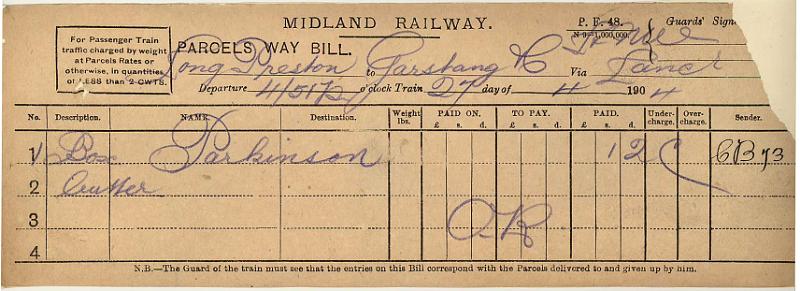 MIDLAND RAILWAY.
For Passenger Train traffic charged by weight at Parcels Rates or otherwise, in quantities of LESS than 2 CWTS.
P. F. 48.
Guards' Sign
PARCELS WAY BILL.
Long Preston to Garstang & C Via Lancr
Departure 4/51 p o'clock Train 27 day of 4 1904
No. Description. NAME. Destination. Weight lbs. PAID ON. £ s. d. TO PAY. £ s. d. PAID. £ s. d. Under-charge. Over-charge. Sender.
1 Box Parkinson 1 2 C
2 butter
3 O.R
4
N.B.—The Guard of the train must see that the entries on this Bill correspond with the Parcels delivered to and given up by him.